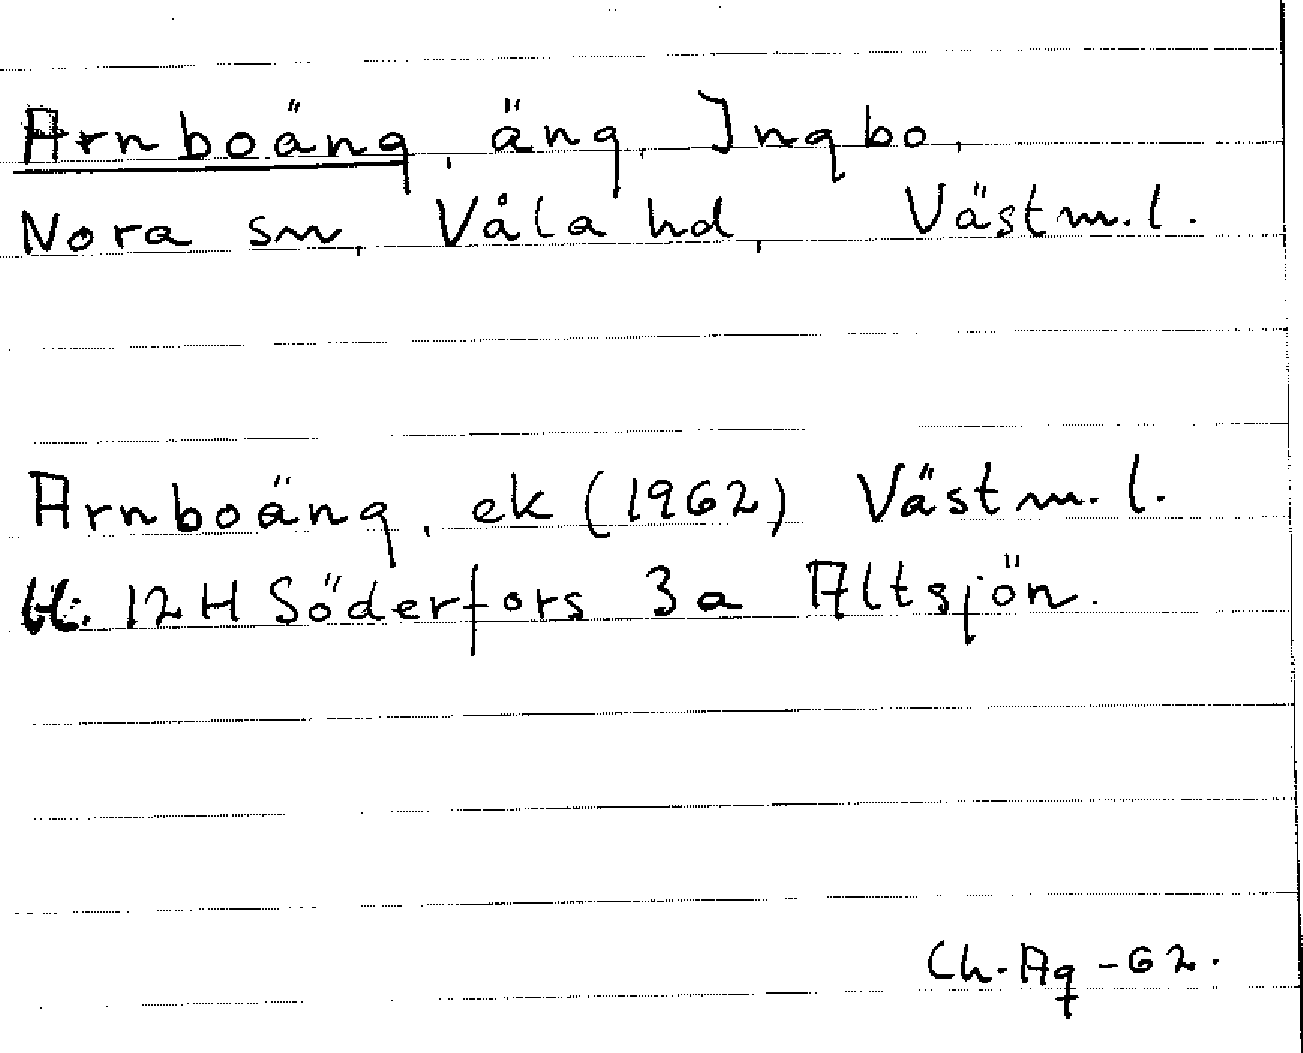 Arnboäng, äng, Ingbo,
Nora sn, Våla hd, Västm.l.
Arnboäng, ek (1962) Västm.l.
12H Söderfors 3a Altsjön.
Ch. Ag -62.